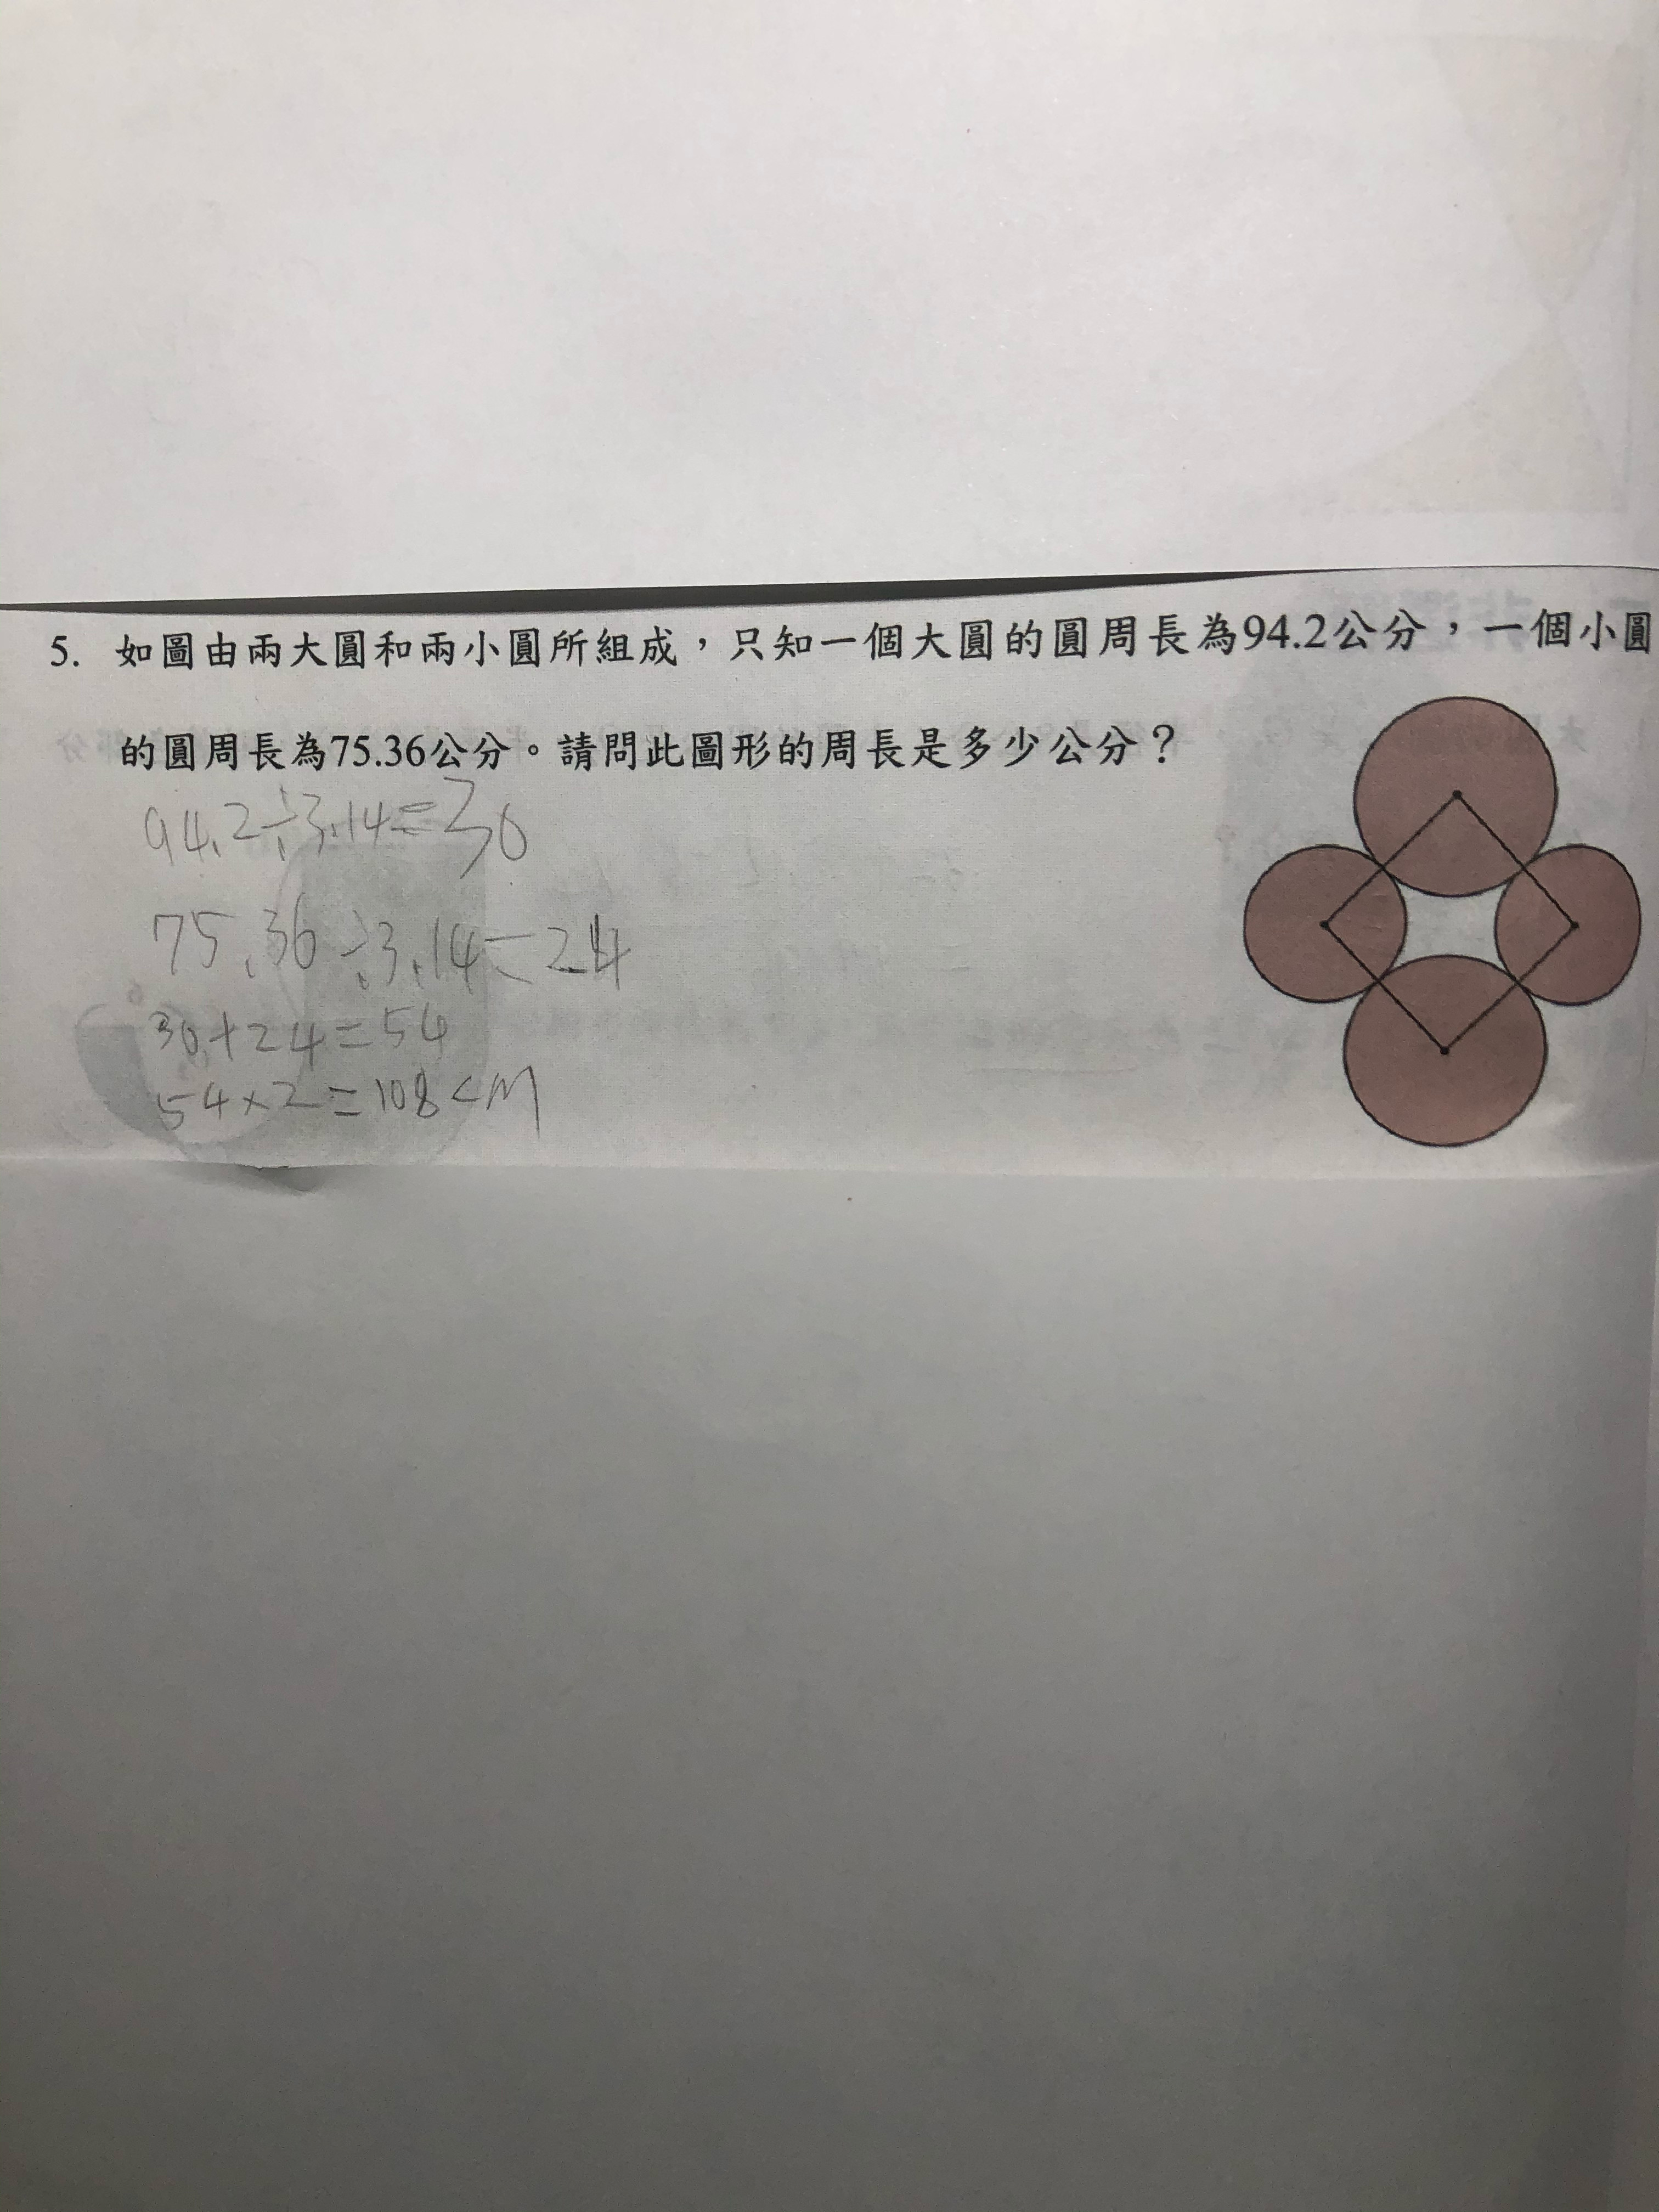 5. 如圖由兩大圓和兩小圓所組成，只知一個大圓的圓周長為94.2公分，一個小圓
的圓周長為75.36公分。請問此圖形的周長是多少公分？
94.2÷3.14=30
75.36÷3.14=24
30+24=54
54×2=108cm